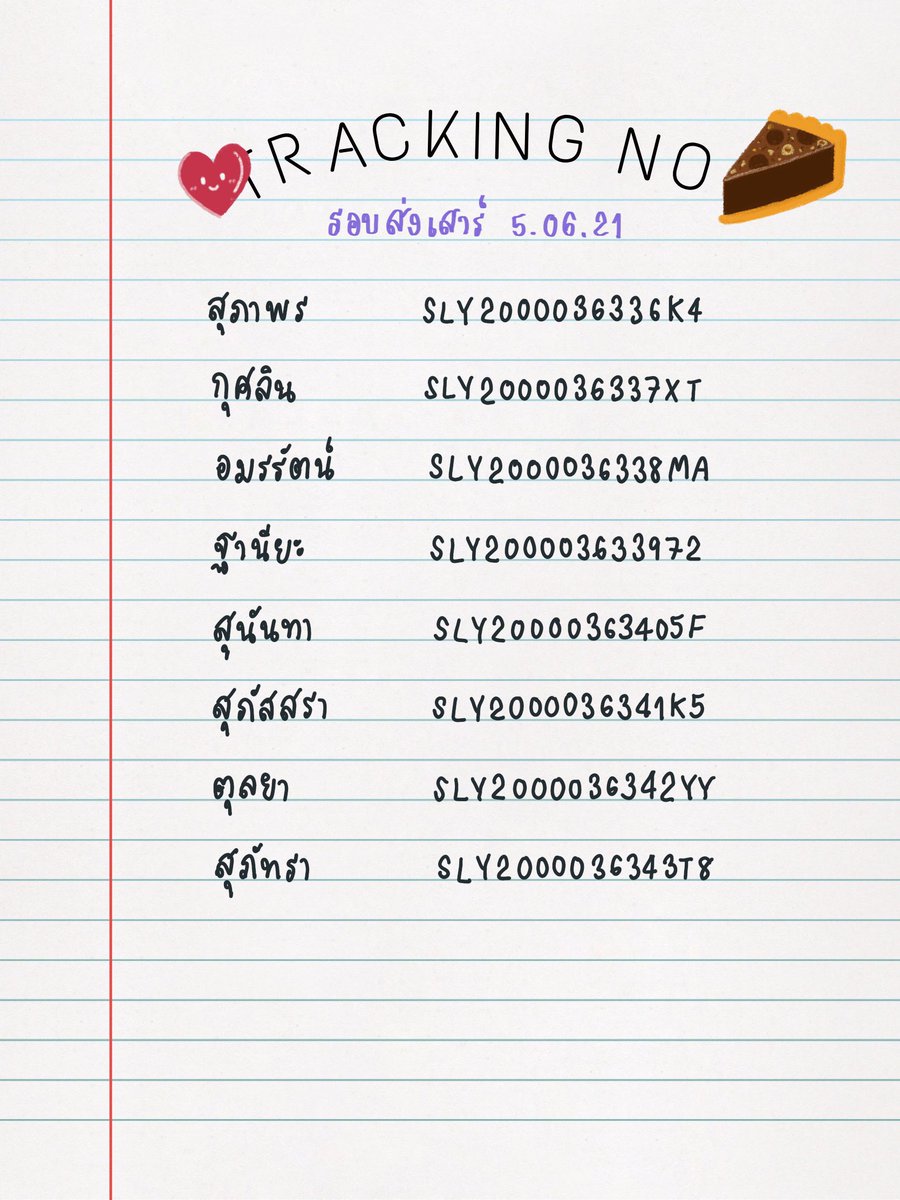 TRACKING NO
รอบส่งเสาร์ 5.06.21
สุภาพร SLY2000036336K4
กุศลิน SLY2000036337XT
อมรรัตน์ SLY2000036338MA
ฐานียะ SLY200003633972
สุนันทา SLY20000363405F
สุภัสสรา SLY2000036341K5
ตุลยา SLY2000036342YY
สุภัทรา SLY2000036343T8